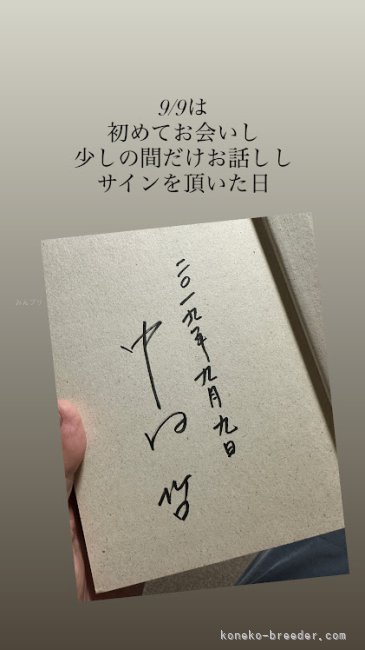 9/9は
初めてお会いし
少しの間だけお話しし
サインを頂いた日
二〇一九年九月九日
koneko-breeder.com